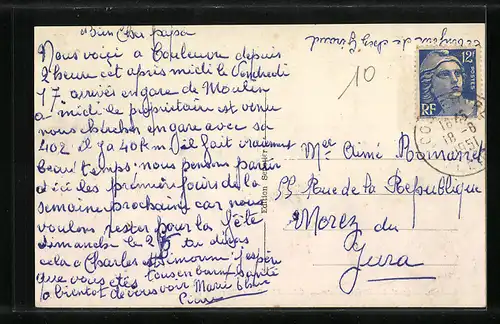 Bien Cher papa
Nous voici à Couleuvre depuis
2 heure cet après midi le vendredi
17 arrivés en gare de Moulin
a midi le propriétaire est venue
nous chercher en gare avec sa
402 il y a 40 km il fait vraiment
beau temps. nous pensons partir
d'ici les premier jours de la
semaine prochaine car nous
voulons rester pour la fête
dimanche le 25 tu diras
cela a Charles et Simone j'espère
que vous êtes tous en bonne santé
a bientôt de vous voir Marie
le bonjour de chez Giraud
10
12F
POSTES
RF
1951
Edition
Mr Aimé Bonmaret
55 Rue de la République
Morez du
Jura